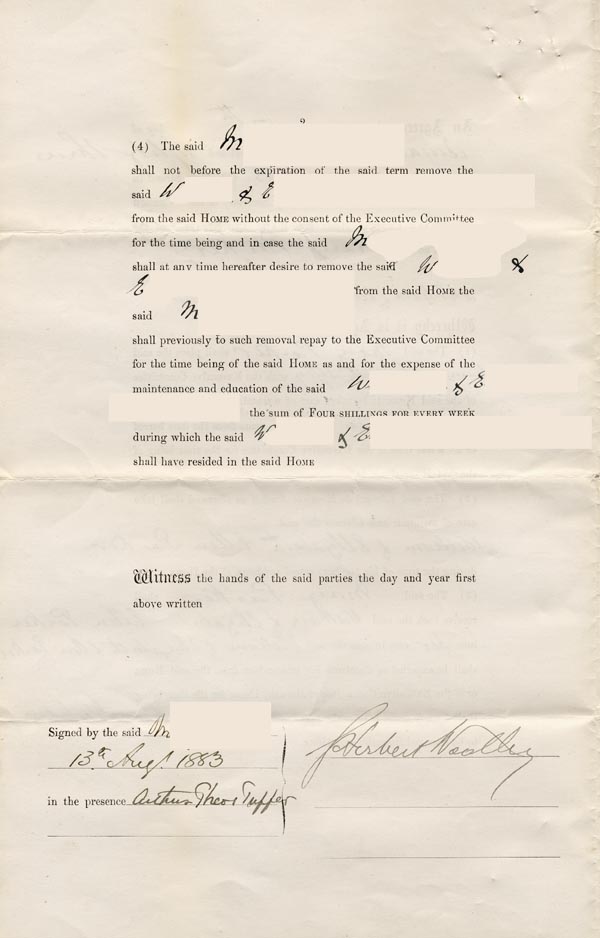 (4) The said M
shall not before the expiration of the said term remove the
said W & E
from the said HOME without the consent of the Executive Committee
for the time being and in case the said M
shall at any time hereafter desire to remove the said W &
E from the said HOME the
said M
shall previously to such removal repay to the Executive Committee
for the time being of the said HOME as and for the expense of the
maintenance and education of the said W. & E
the sum of FOUR SHILLINGS FOR EVERY WEEK
during which the said W & E
shall have resided in the said HOME
Witness the hands of the said parties the day and year first
above written
Signed by the said M
13th Augt 1883
in the presence Arthur Theos Tupper
Herbert